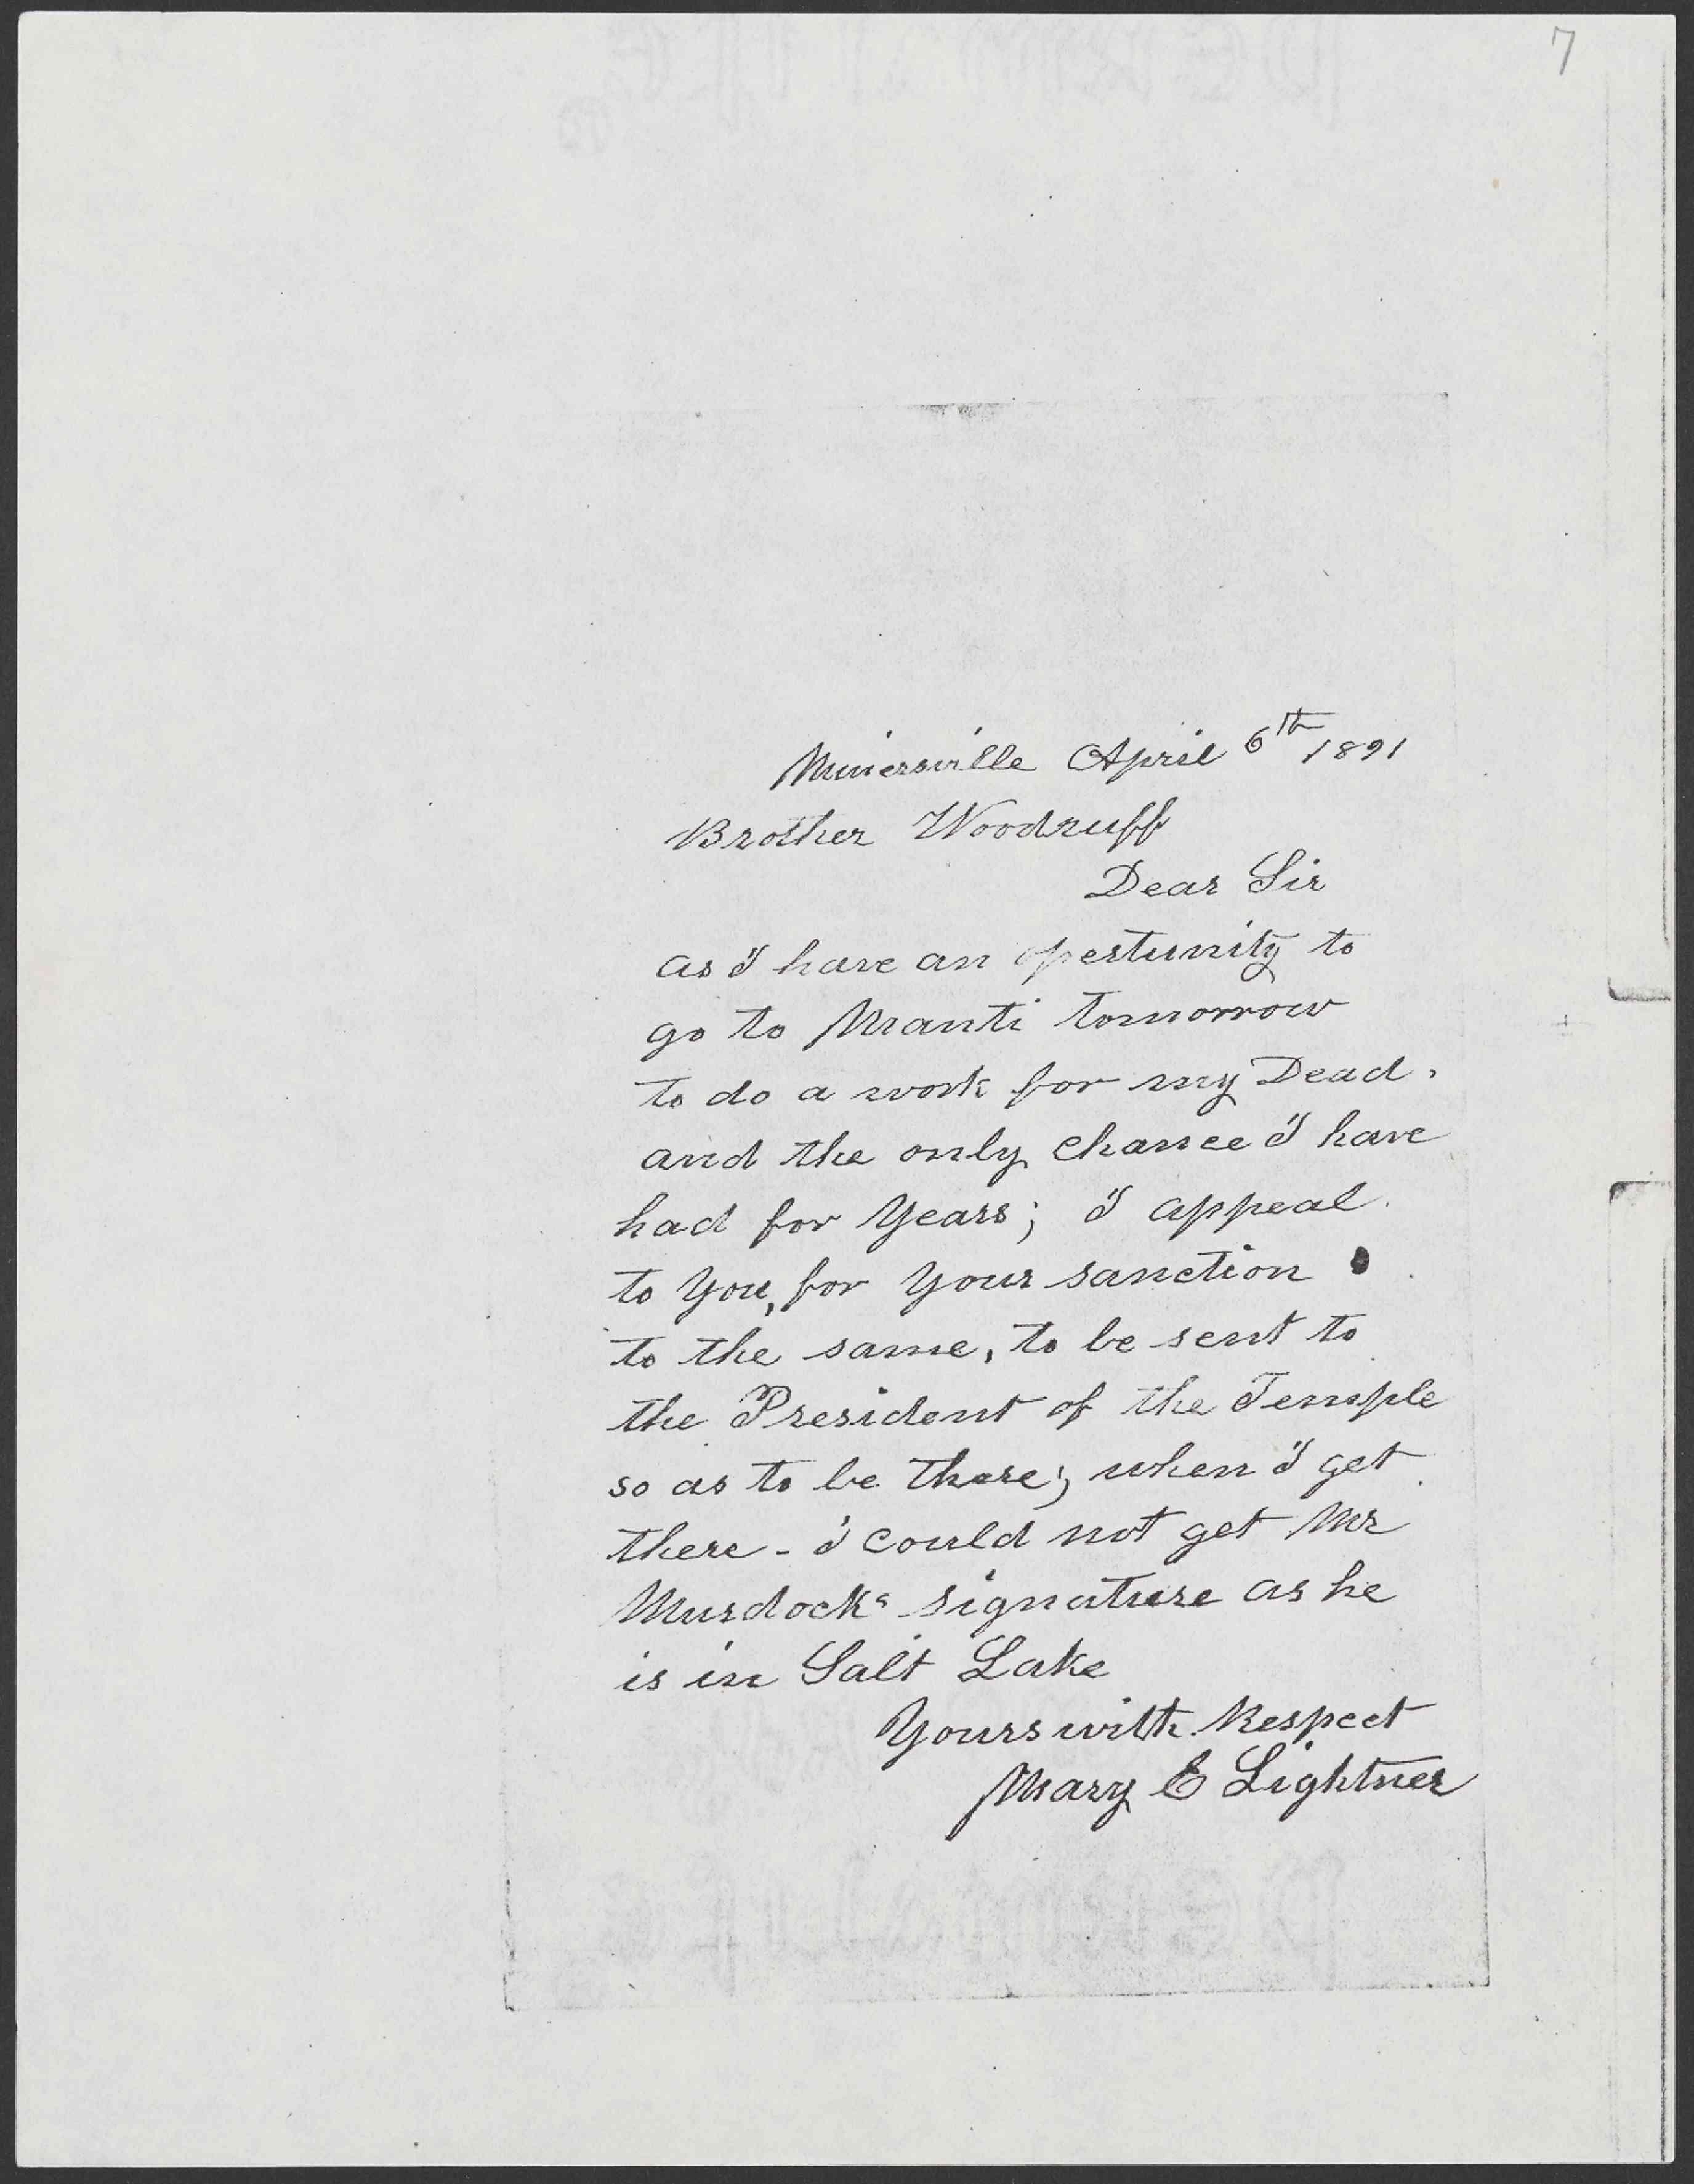 7
Minersville April 6th 1891
Brother Woodruff
Dear Sir
as I have an opertunity to
go to Manti tomorrow
to do a work for my Dead,
and the only chance I have
had for Years; I appeal
to You, for Your sanction
to the same, to be sent to
the President of the Temple
so as to be there; when I get
there - I could not get Mr
Murdocks signature as he
is in Salt Lake
Yours with Respect
Mary E Lightner